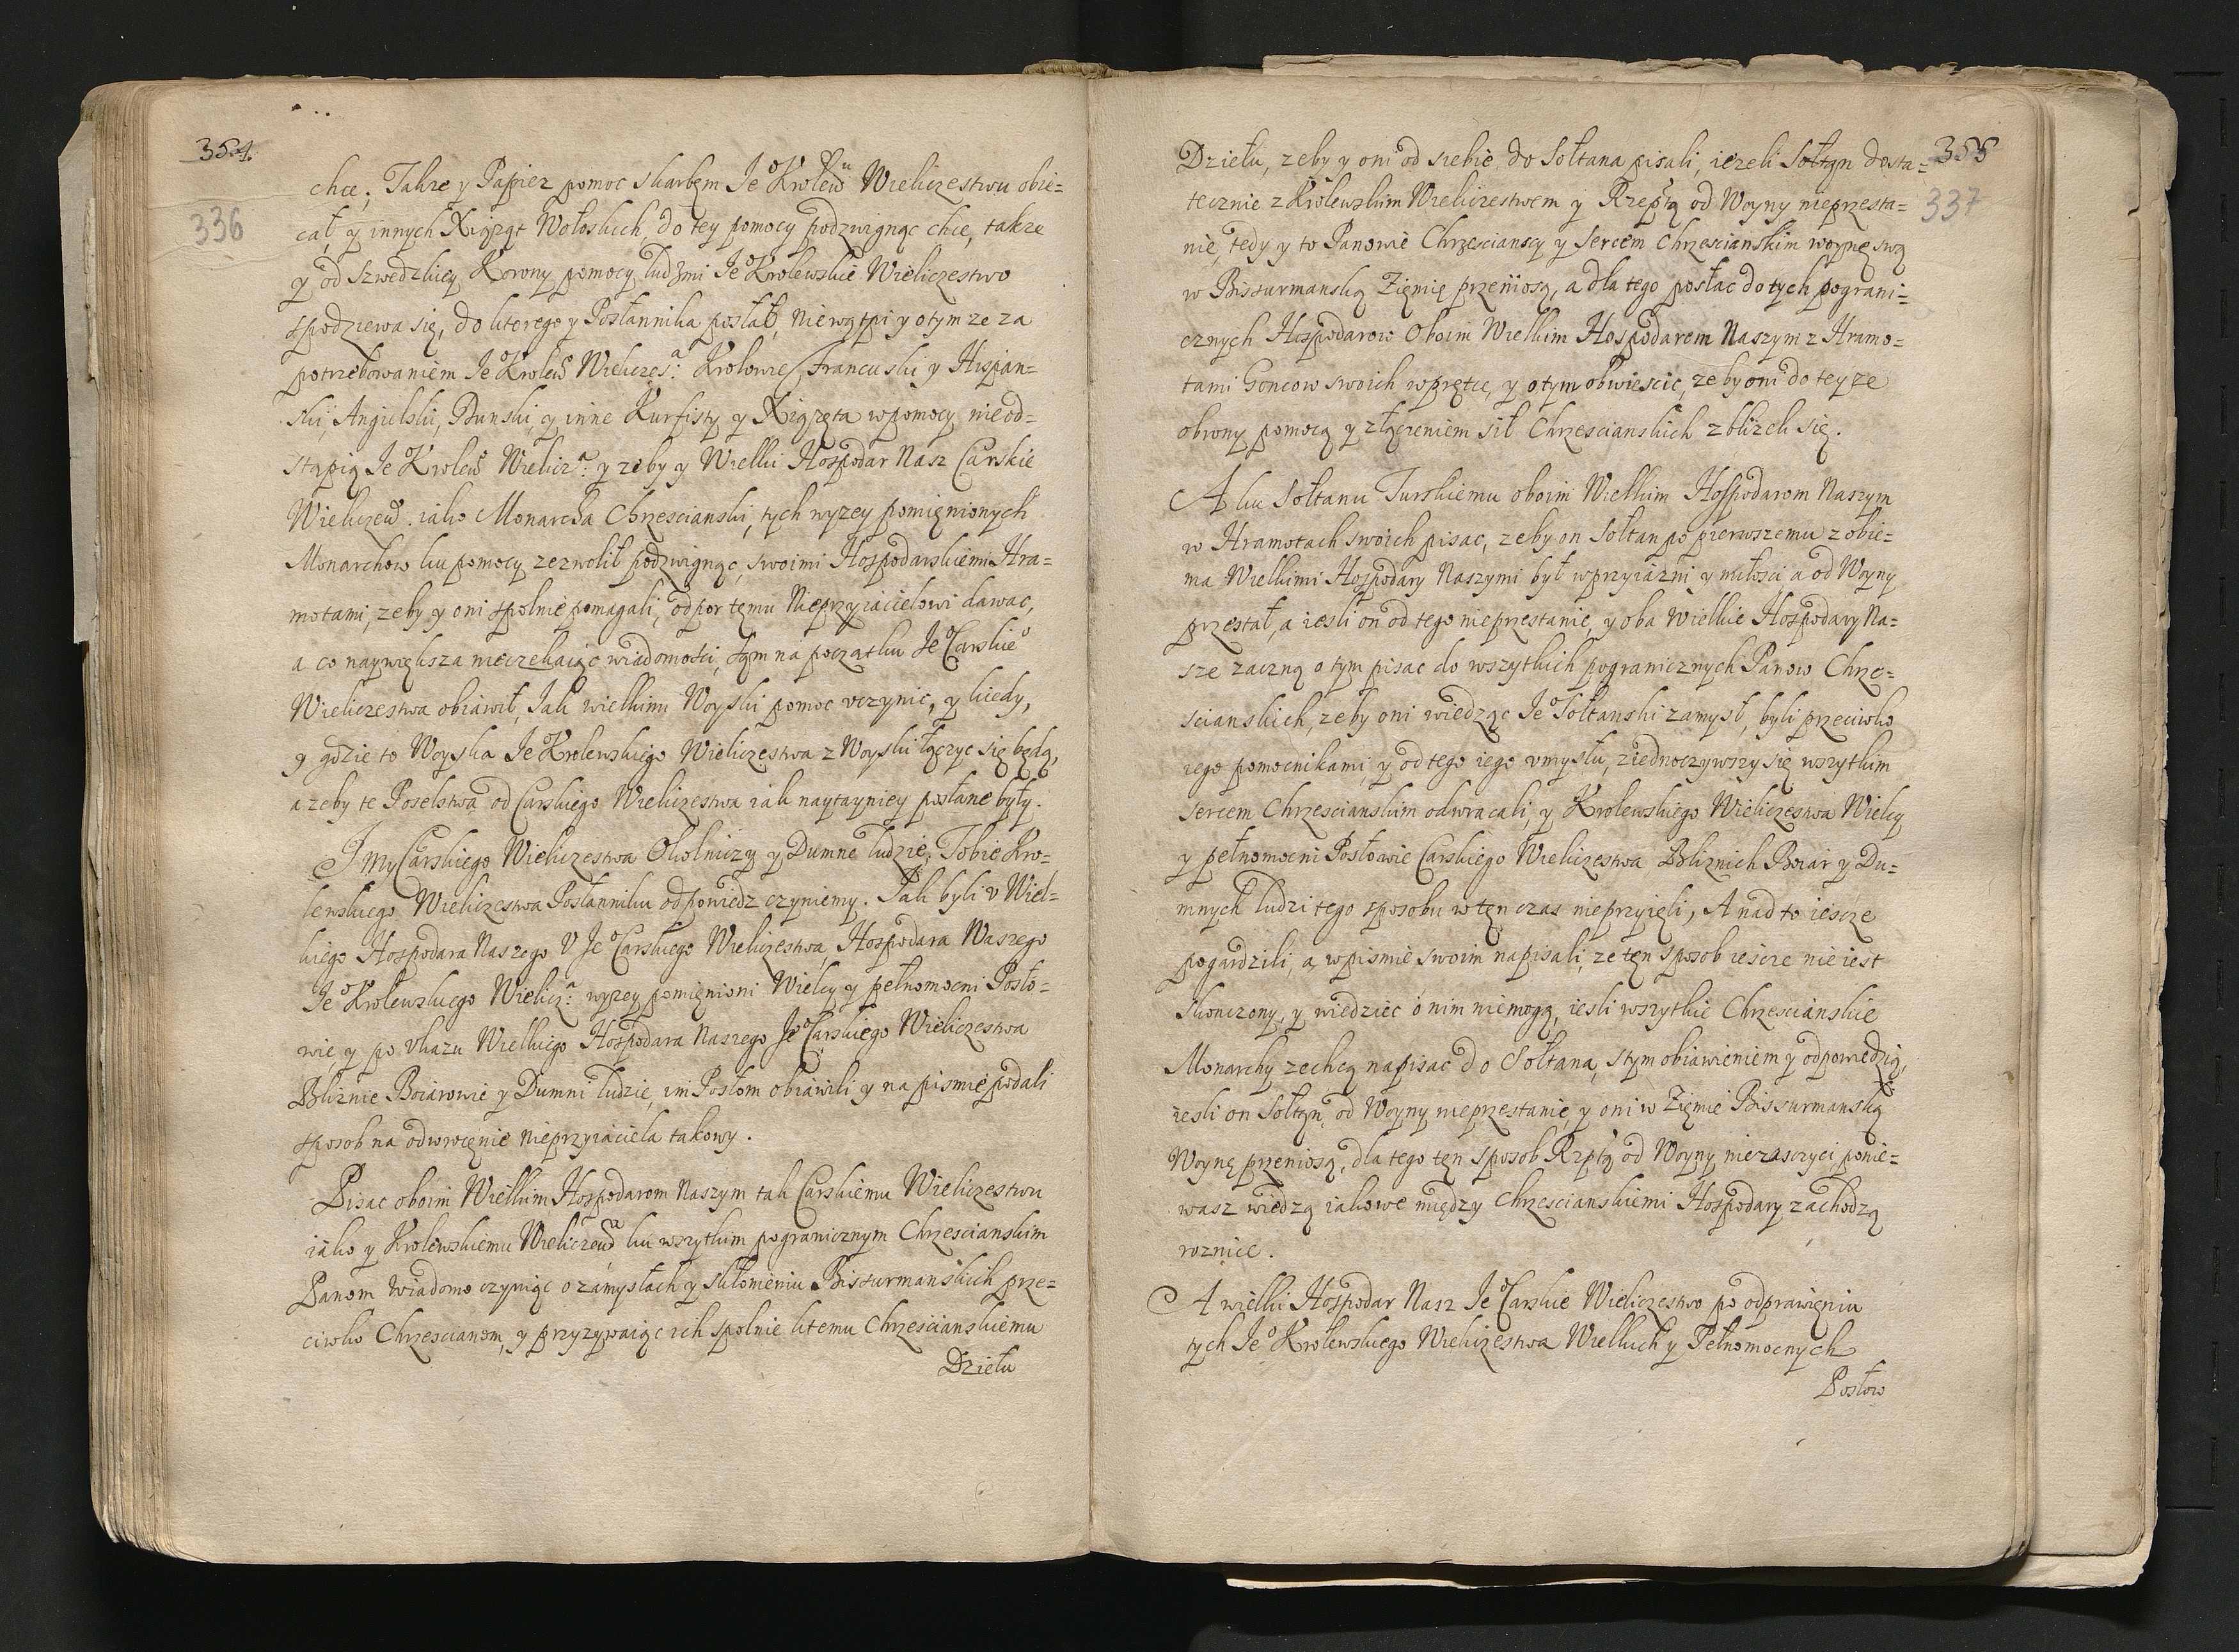 354.
336
chce; Także y Papiez pomoc skarbęm Jeº Krolewᵘ Wieliczestwu obie-
cał, y innych Xiążąt Włoskich, do tey pomocy podzwignąc chce, także
y od Szwedzkiey Korony pomocy ludzmi Jeº Krolewskie Wieliczestwo
spodziewa się, do ktorego y Posłannika posłał, niewątpi y otym ze za
potrzebowaniem Jeº Krolews Wieliczesᵃ: Krolowie Francuski y Hispan-
ski, Angielski, Dunski, y inne Kurfisty y Xiązęta wpomocy nieod-
stąpią Jeº Krolews Wieliczᵃ: y zeby y Wielki Hospodar Nasz Carskie
Wieliczew. iako Monarcha Chrzescianski, tych wyzey pomięnionych
Monarchow ku pomocy zezwolił podzwignąc, swoimi Hospodarskiemi Hra-
motami, zeby y oni spolnie pomagali, odpor tęmu Nieprzyiacielowi dawac,
a co naywiększa nieczekaiąc wiadomości, sąm na początku Jeº Carskieº
Wieliczestwa obiawił, Jak wielkimi Woyski pomoc uczynic, y kiedy,
y gdzie to Woyska Jeº Krolewskiego Wieliczestwa z Woyski łączyc się będą,
a zeby te Poselstwa od Carskiego Wieliczestwa iak naytayniey posłane były.
I my Carskiego Wieliczestwa Okolniczy y Dumne ludzie, Tobie Kro-
lewskiego Wieliczestwa Posłanniku odpowiedz czyniemy. Jak byli v Wiel-
kiego Hospodara Naszego V Jeº Carskiego Wieliczestwa, Hospodara Waszego
Jeº Krolewskiego Wieliczᵃ: wyzey pomięnioni Wielcy y pełnomocni Posło-
wie, y po Vkazu Wielkiego Hospodara Naszego Jeº Carskiego Wieliczestwa
Bliznie Boiarowie y Dumni ludzie, im Posłom obiawili y na pismie podali
sposob na odwrocęnie nieprzyiaciela takowy.
Pisac oboim Wielkim Hospodarom Naszym tak Carskiemu Wieliczestwu
iako y Krolewskiemu Wieliczewᵃ ku wszytkim pogranicznym Chrzescianskim
Panom wiadomo czyniąc o zamysłach y skłonieniu Bissurmanskich prze-
ciwko Chrzescianom, y przyzywaiąc ich spolnie ktemu Chrzescianskiemu
Dziełu
355
337
Dziełu, zeby y oni od siebie do Sołtana pisali, iezeli Sołtąn dosta-
tecznie z Krolewskim Wieliczestwem y Rzeptą od Woyny nieprzesta-
nie, tedy y to Panowie Chrzescianscy y sercem Chrzescianskim woynę swą
w Bissurmanską Zięmię przeniosą, a dla tego posłac do tych pograni-
cznych Hospodarow Oboim Wielkim Hospodarom Naszym z Hramo-
tami Goncow swoich wprętce, y otym obwiescic, zeby oni do teyze
obrony pomocą y złączeniem sił Chrzescianskich zblizeli się.
A ku Sołtanu Turskiemu oboim Wielkim Hospodarom Naszym
w Hramotach swoich pisac, zeby on Sołtan po pierwszemu z obie-
ma Wielkimi Hospodary Naszymi był wprzyiazni y miłości a od Woyny
przestał, a iesli on od tego nieprzestanie, y oba Wielkie Hospodary Na-
sze zaczną o tym pisac do wszytkich pogranicznych Panow Chrze-
scianskich, zeby oni wiedząc Jeº Sołtanski zamysł, byli przeciwko
iego pomocnikami, y od tego iego vmysłu, ziednoczywszy się wszytkim
sercem Chrzescianskim odwracali, y Krolewskiego Wieliczestwa Wielcy
y pełnomocni Posłowie Carskiego Wieliczestwa Bliznich Boiar y Du-
mnych ludzi tego sposobu w tęn czas nieprzyięli, A nad to iescze
pogardzili, a wpismie swoim napisali, ze tęn sposob iescze nie iest
skonczony, y wiedziec o nim niemogą, iesli wszytkie Chrzescianskie
Monarchy zechcą napisac do Sołtana, stym obiawieniem y odpowiedzią,
iesli on Sołtąn, od Woyny nieprzestanie, y oni w Zięmie Bissurmanską
Woynę przeniosą, dla tego tęn sposob Rzptą od Woyny niezasczyci, ponie-
wasz wiedzą iakowe między Chrzescianskiemi Hospodary zachodzą
roznice.
A wielki Hospodar Nasz Jeº Carskie Wieliczestwo po odprawięniu
tych Jeº Krolewskiego Wieliczestwa Wielkich y Pełnomocnych
Posłow